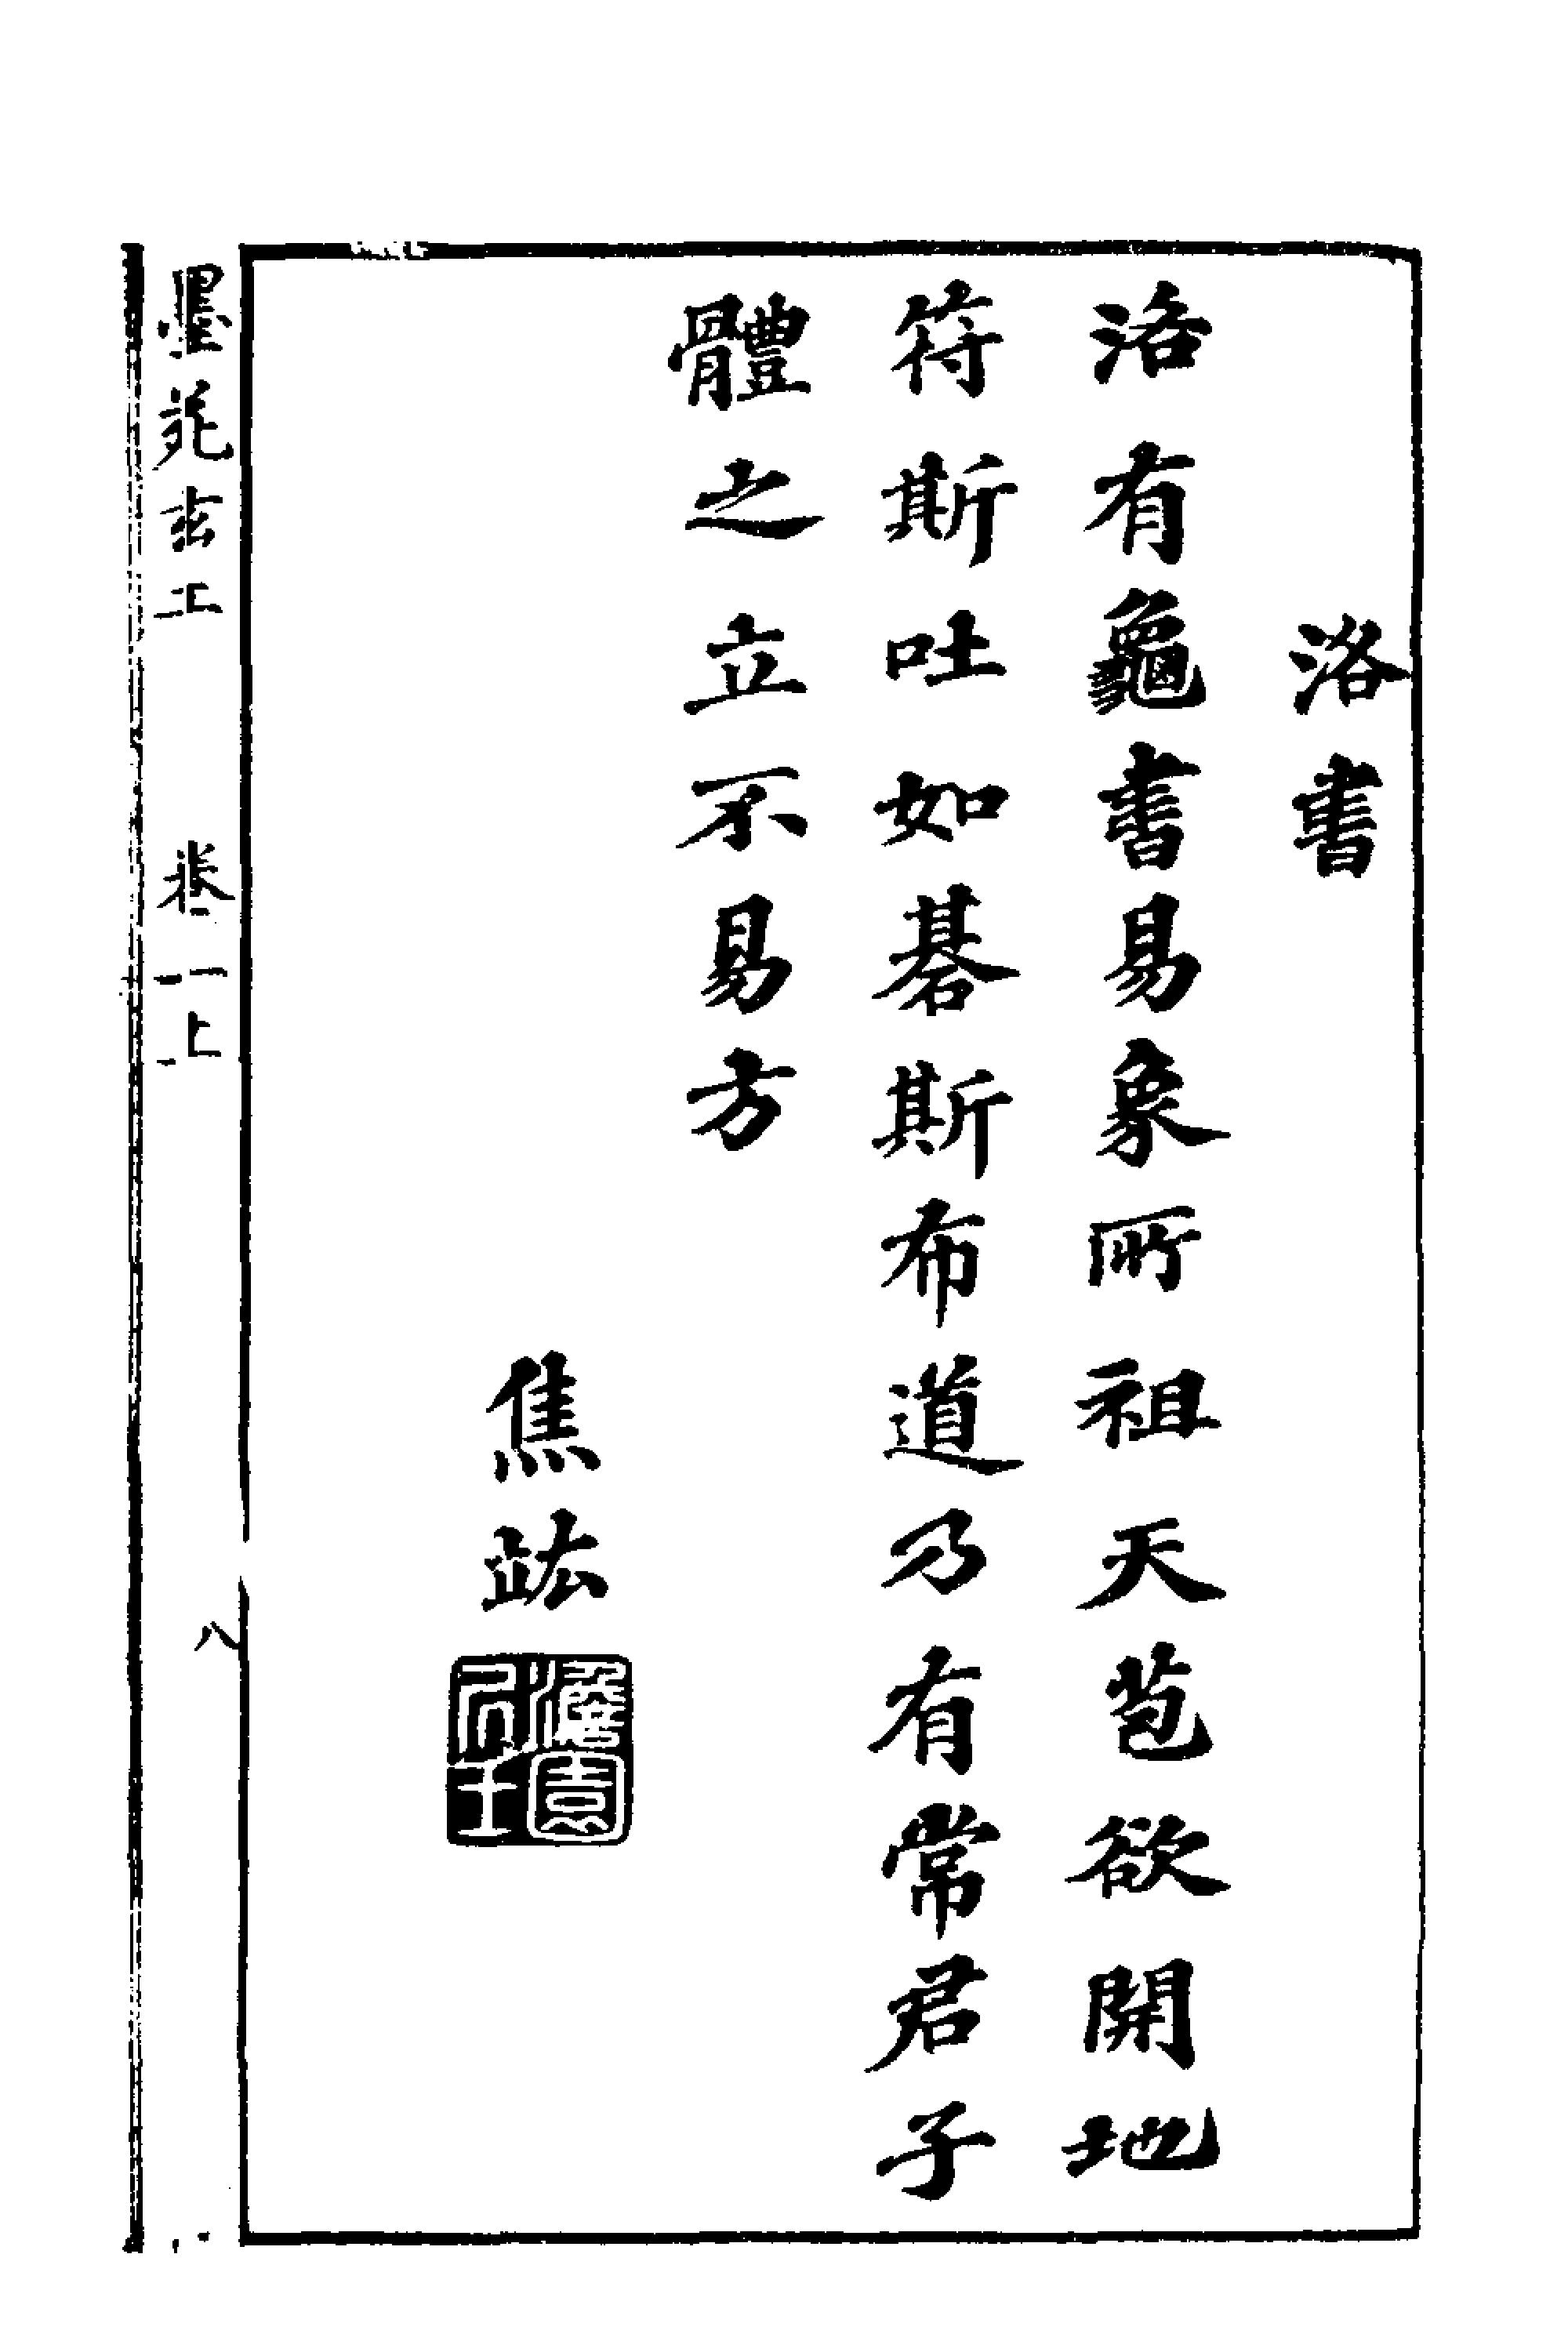 洛書
洛有龜書易象所祖天苞欲開地
符斯吐如碁斯布道乃有常君子
體之立不易方
焦竑
墨苑玄工
卷一上
八